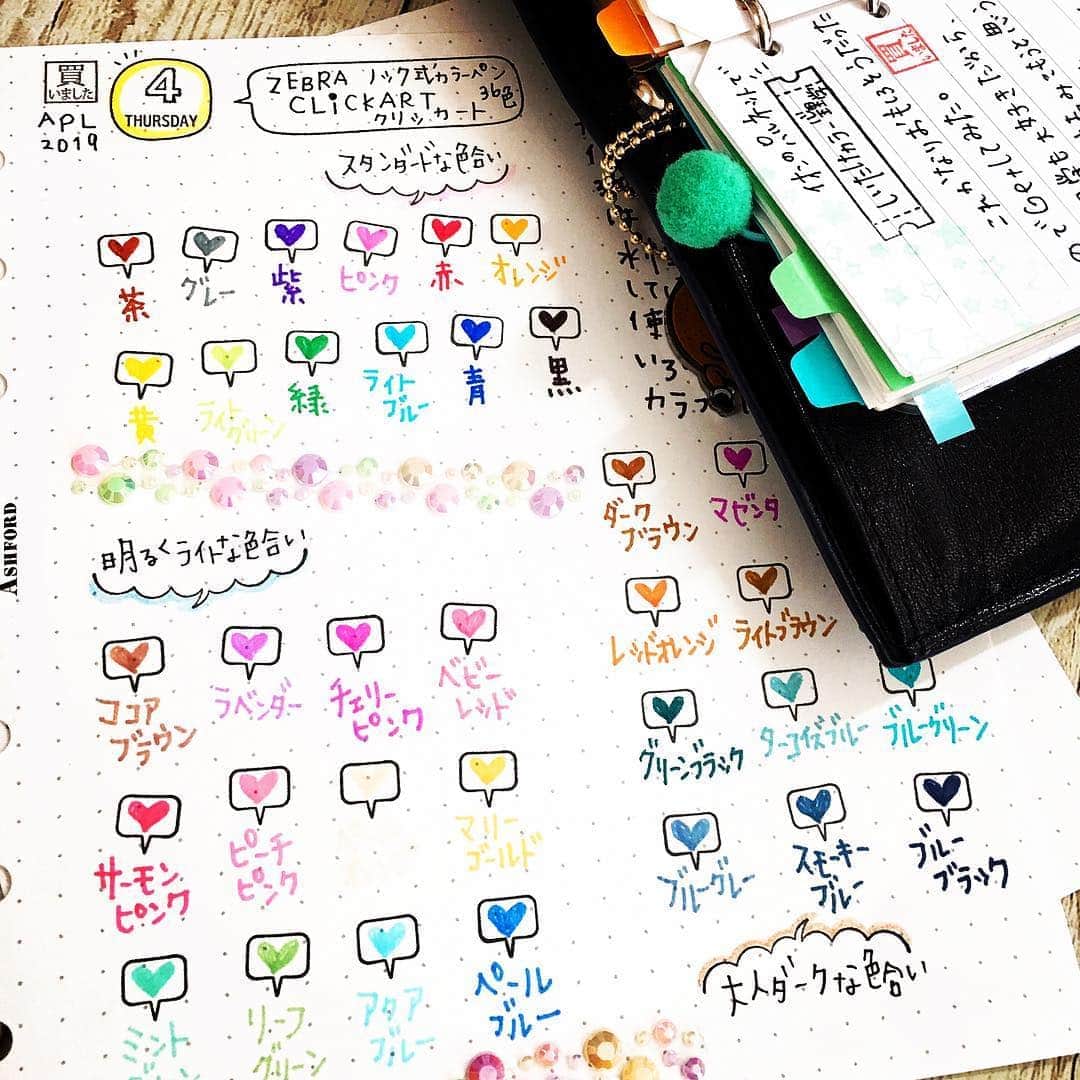 買
いました
APL
2019
4
THURSDAY
ZEBRA ノック式カラーペン
CLiCKART 36色
クリッカート
スタンダードな色合い
茶
グレー
紫
ピンク
赤
オレンジ
黄
ライト
グリーン
緑
ライト
ブルー
青
黒
ASHFORD
明るくライトな色合い
ココア
ブラウン
ラベンダー
チェリー
ピンク
ベビー
レッド
サーモン
ピンク
ピーチ
ピンク
マリー
ゴールド
ミント
リーフ
グリーン
アクア
ブルー
ペール
ブルー
ダーク
ブラウン
マゼンタ
レッドオレンジ
ライトブラウン
グリーンブラック
ターコイズブルー
ブルーグリーン
ブルーグレー
スモーキー
ブルー
ブルー
ブラック
大人ダークな色合い
して
使
いろ
カラ
買
いました
しいたけカラー講座
これかなりおもしろそうだった
のでGetしてみた。